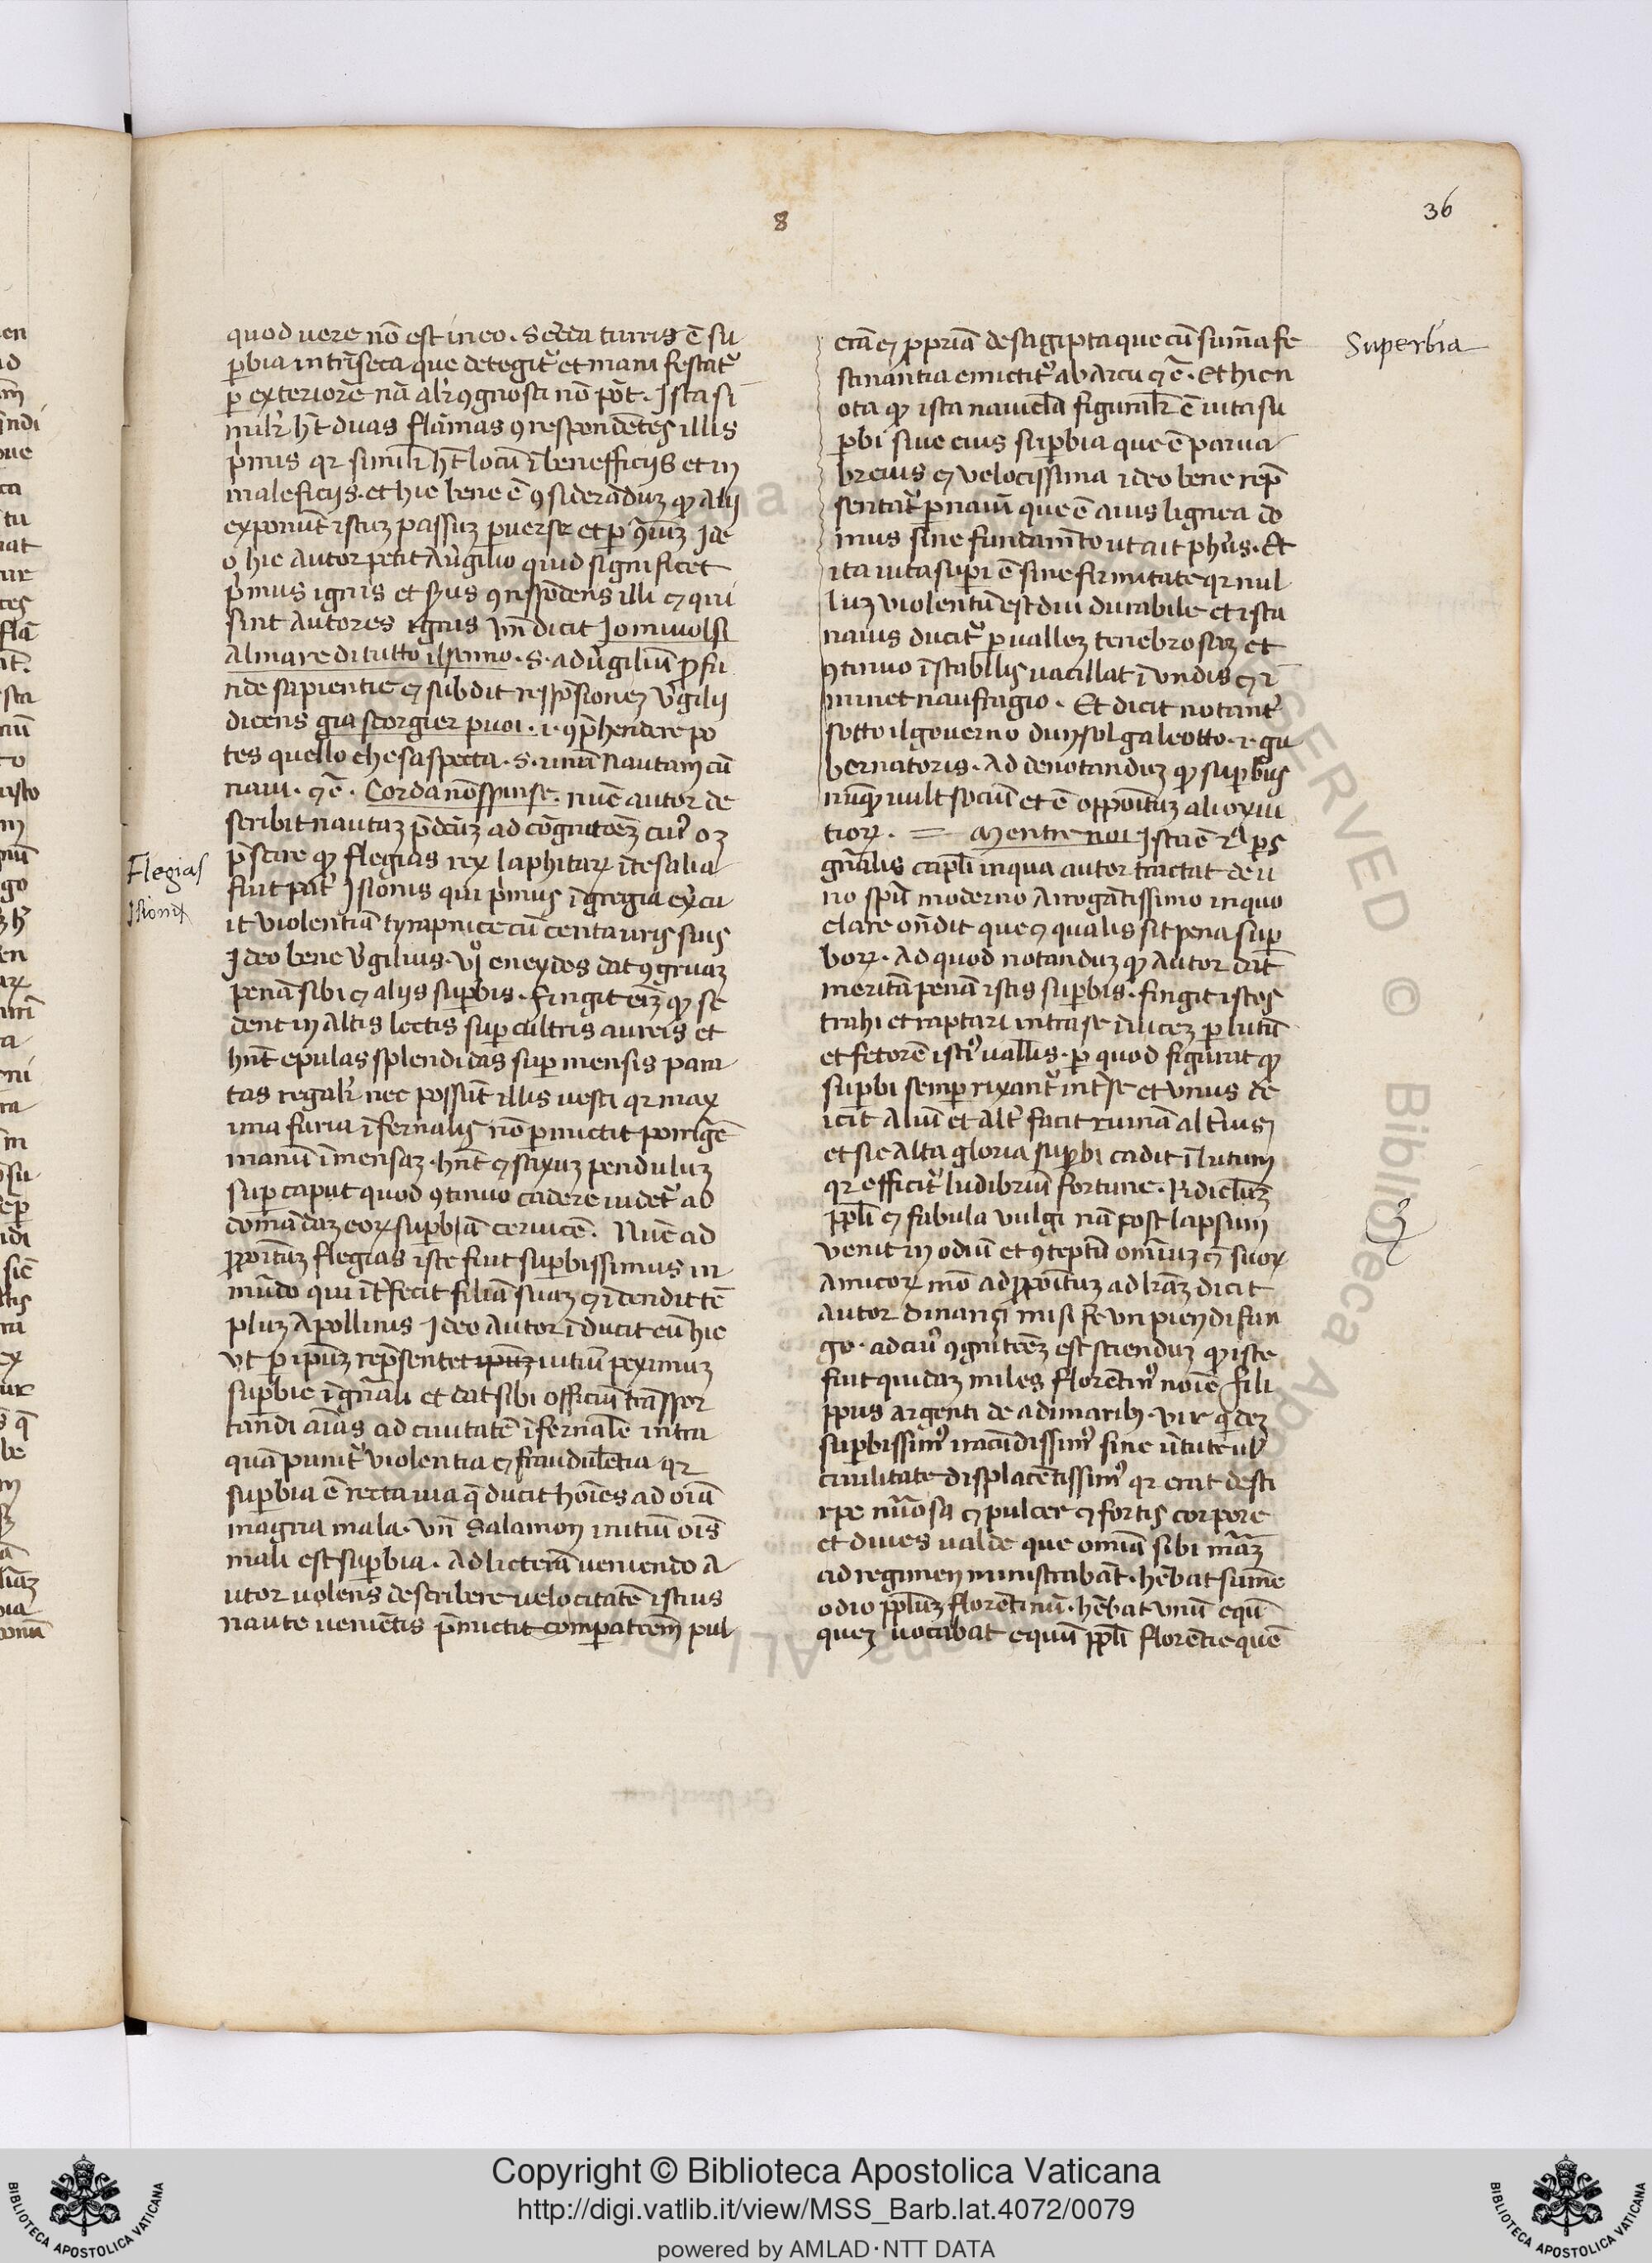 8
36
quod vere nō est in eo. Secūda turris ē su
ꝑbia intrīseca que detegitᷣ et manifestatᷣ
ꝑ exteriorē nā alr̄ ꝯgnosci nō pōt. Ista si
milr̄ hꝫt duas flāmas ꝯrespondētes illis
pͥmis qr simili hꝫt locū ī benefficijs et in
maleficijs. et hic bene ē ꝯsiderāduꝫ ꝙ alij
exponūt istuꝫ passuꝫ ꝑverse et ꝑ ꝯrīuꝫ Ide
o hic autor petit a Vͥgilio quid significet
pͥmus ignis et ꝯrespōdens illi ⁊ qui
sint autores ignis vn̄ dicit Io mi volsi
al mare di tutto il senno. s. ad Vͥgiliū ꝓfū
tide sapientie ⁊ subdit respōsioneꝫ Vͥgilij
dicens gia scorgier puoi. i. ꝯprehendere po
tes quello che s aspecta. s. unū nautam cū
navi. ⁊ c̄. Corda nō spinse. nūc autor de
scribit nautaꝫ p̄dc̄ūꝫ ad cognitōeꝫ cuiꝰ oꝫ
p̄scire ꝙ flegias rex laphitaꝝ ī tesalia
fuit patͥ Isionis qui pͥmus ī gregia exͥcu
it violentiā tyrapnice cū centauris suis
Ideo bene Vͥgilius. vjͦ eneydos dat ꝯgruaꝫ
penā sibi ⁊ alijs suꝑbis. fingit eīꝫ ꝙ se
dent in altis lectis suꝑ cultris aureis et
hn̄t epulas splendidas suꝑ mensis para
tas regalr̄ nec possūt illis vesci qr max
ima furia īfernalis nō ꝑmictit porrigē
manū ī mensaꝫ. hn̄t ⁊ saxuꝫ penduluꝫ
suꝑ caput quod ꝯtinuo cadere videtᷣ ad
domādaꝫ eoꝝ suꝑbiā cervicē. Nūc ad
ꝓpoītuꝫ flegias iste fuit suꝑbissimus in
mūdo qui ītͥfecit filiā suaꝫ ⁊ īcendit tē
pluꝫ Apollinis Ideo autor īducit eū hic
vt ꝑ ipūꝫ rep̄sentet ipūꝫ vitiū peximuꝫ
suꝑbie ī gn̄ali et dat sibi officiū trāspor
tandi aīas ad civitatē īfernalē intra
quā punitᷣ violentia ⁊ fraudulētia qr
suꝑbia ē recta via q̄ ducit hoīes ad oīa
magna mala. Vn̄ Salamon initiū oīs
mali est suꝑbia. Ad licterā veniendo a
utor volens describere velocitatē istius
naute veniētis p̄mictit comparatōeꝫ pul
Flegias
Isionis
crā ⁊ ꝓpriā de sagipta que cū summa fe
stinantia emictitᷣ ab arcu ⁊ c̄. Et hic n
ota ꝙ ista navicla figuralr̄ ē vita su
ꝑbi sive eius suꝑbia que ē parva
brevis ⁊ velocissima ideo bene rep̄
sentatᷣ ꝑ navī que ē avis lignea do
mus sine fundamīto ut ait ph̄us. Et
ita vita suꝑbi ē sine firmitate qr nul
luꝫ violentū est diu durabile et ista
navis ducitᷣ ꝑ valleꝫ tenebrosaꝫ et
ꝯtinuo īstabillis vacillat ī undis ⁊ ī
minet naufragio. Et dicit notantͥ
sotto il governo d un sol galeotto. i. gu
bernatoris. Ad denotanduꝫ ꝙ suꝑbus
nūꝙ vult sociū et ē oppoītuꝫ alioꝝ vi
tioꝝ. Mentre noi Ista ē 2ᵃ ꝑs
gn̄alis capli in qua autor tractat de u
no spū moderno arrogātissimo in quo
clare ondit que ⁊ qualis sit pena suꝑ
boꝝ. Ad quod notanduꝫ ꝙ autor dat
meritā penā istis suꝑbis. fingit istos
trahi et raptari intra se īviceꝫ ꝑ lutū
et fetorē istiꝰ vallis. ꝑ quod figurat ꝙ
suꝑbi semꝑ rixantᷣ intͥ se et unus de
icit aliū et altͥ facit ruinā altͥius
et sic alta gloria suꝑbi cadit ī lutum
qr efficitᷣ ludibriū fortune. Ridiclūꝫ
ppli ⁊ fabula vulgi nā post lapsum
venit in odiū et ꝯteptū omniuꝫ ⁊ suoꝝ
amicoꝝ mō ad ꝓpoītuꝫ ad lr̄aꝫ dicit
autor dinançi mi si fe un pien di fan
go. ad cuiꝰ ꝯgnitōeꝫ est scienduꝫ ꝙ iste
fuit quidaꝫ miles florētinꝰ noīe fili
ppus argenti de adimaribꝫ. vir qͥdeꝫ
suꝑbissimꝰ iracūdissimꝰ sine vͥtute ul
civilitate displacētissimꝰ qr erat de sti
rpe nūosa ⁊ pulcer ⁊ fortis corpore
et dives valde que omīa sibi mr̄aꝫ
ad regimen ministrabāt. hēbat sūme
odio pplūꝫ florētinū. hēbat unū equū
queꝫ vocabat equū ppli florētie quē
Superbia
Copyright © Biblioteca Apostolica Vaticana
http://digi.vatlib.it/view/MSS_Barb.lat.4072/0079
powered by AMLAD·NTT DATA
BIBLIOTECA APOSTOLICA VATICANA
BIBLIOTECA APOSTOLICA VATICANA